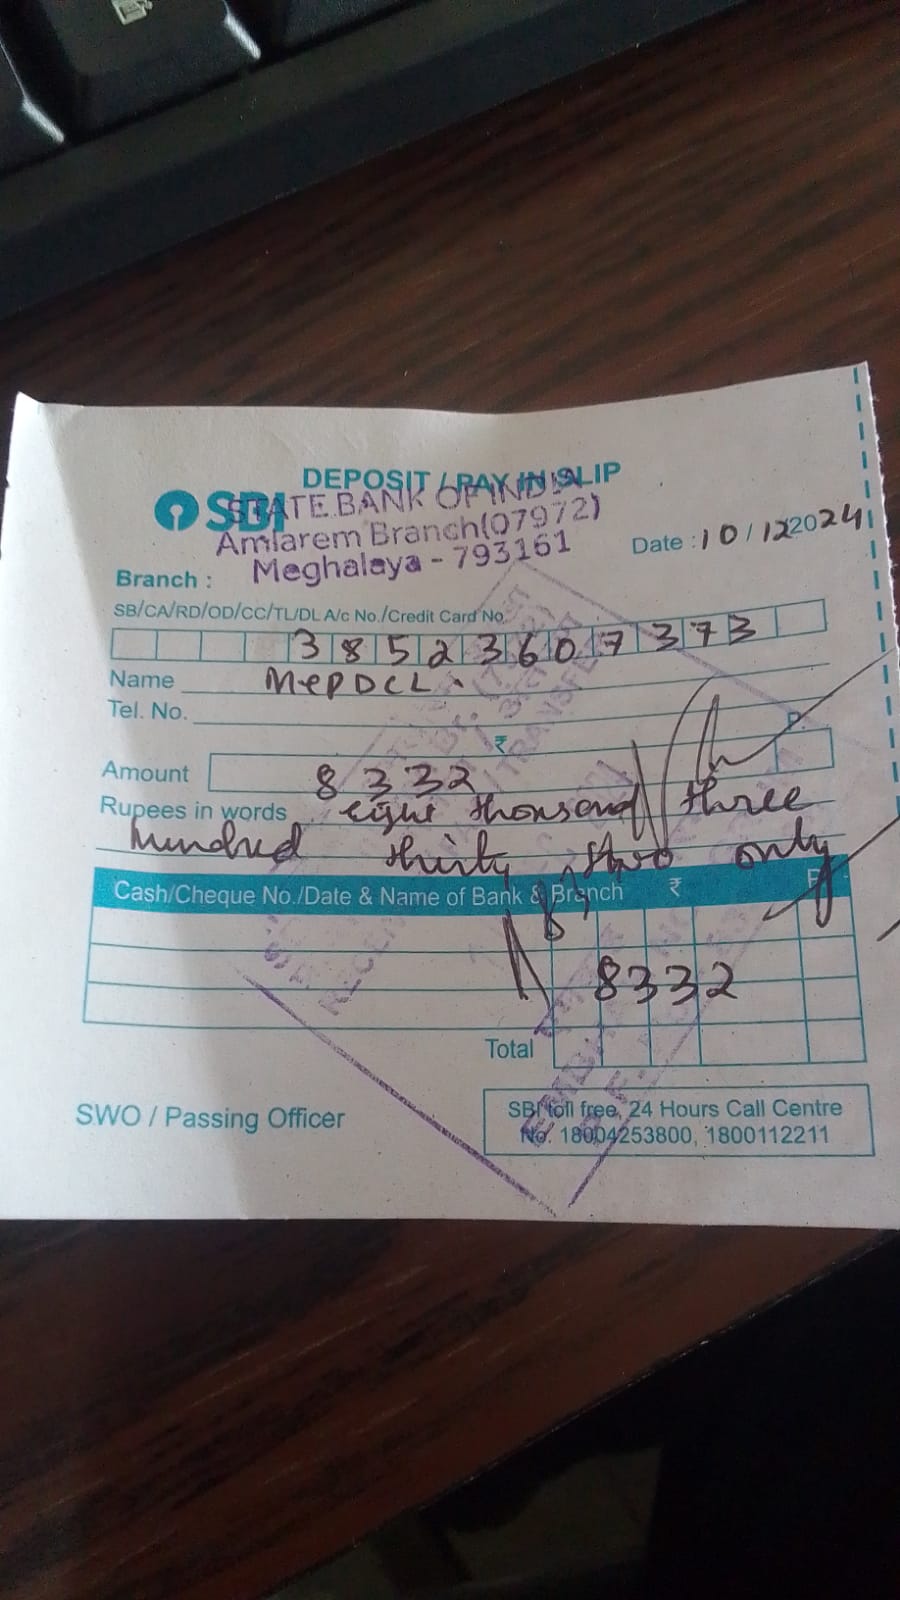 DEPOSIT / PAY IN SLIP
SBI
STATE BANK OF INDIA
Amlarem Branch(07972)
Meghalaya - 793161
Date : 10/12 2024
Branch :
SB/CA/RD/OD/CC/TL/DL A/c No./Credit Card No.
38523607373
Name MePDCL.
Tel. No.
₹ P.
Amount 8332
Rupees in words eight thousand three
hundred thirty two only
Cash/Cheque No./Date & Name of Bank & Branch ₹ P.
8332
Total
SWO / Passing Officer
SBI toll free, 24 Hours Call Centre
No. 18004253800, 1800112211